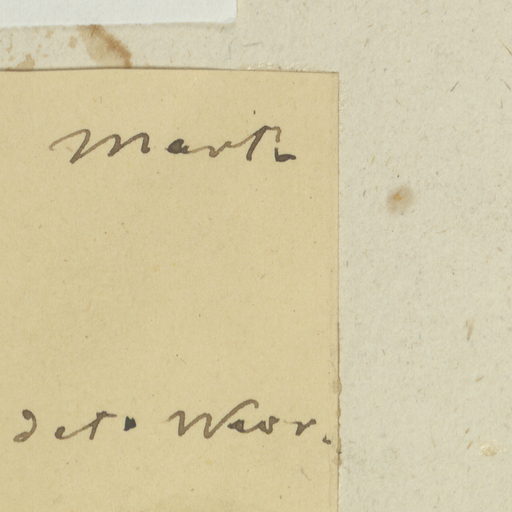 Mart.
det. Weor.